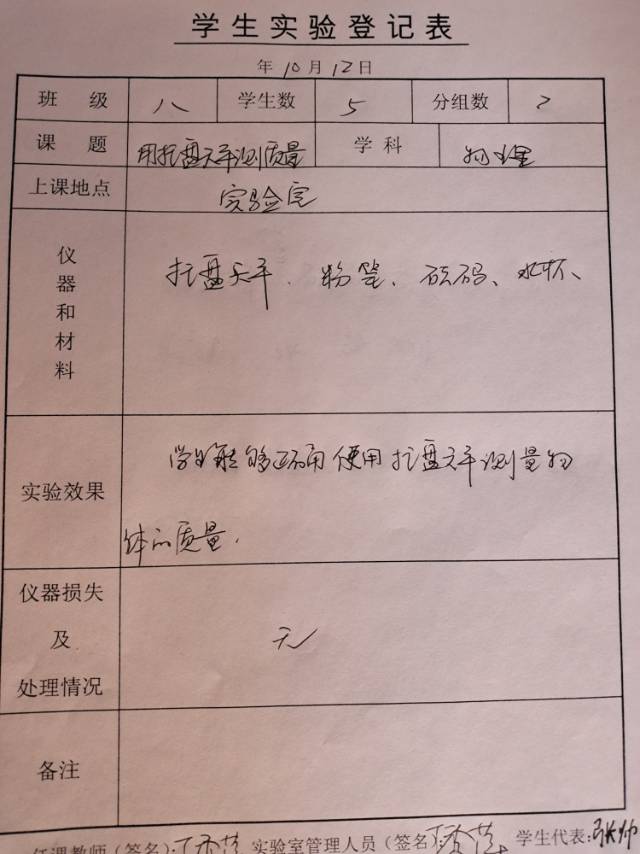 学生实验登记表
年10月12日
班 级 八 学生数 5 分组数 2
课 题 用托盘天平测质量 学 科 物理
上课地点 实验室
仪器和材料 托盘天平、粉笔、砝码、水杯、
实验效果 学生能够正确使用托盘天平测量物
体的质量.
仪器损失
及 无
处理情况
备注
任课教师(签名): 实验室管理人员(签名) 学生代表: